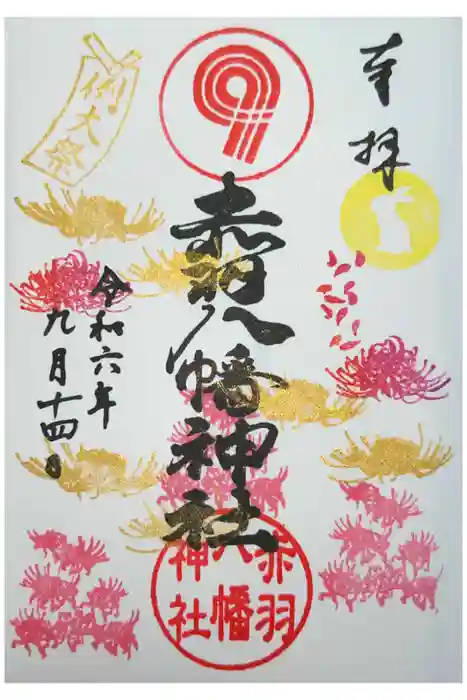 奉拝
赤羽八幡神社
赤羽
八幡
神社
例大祭
令和六年
九月十四日